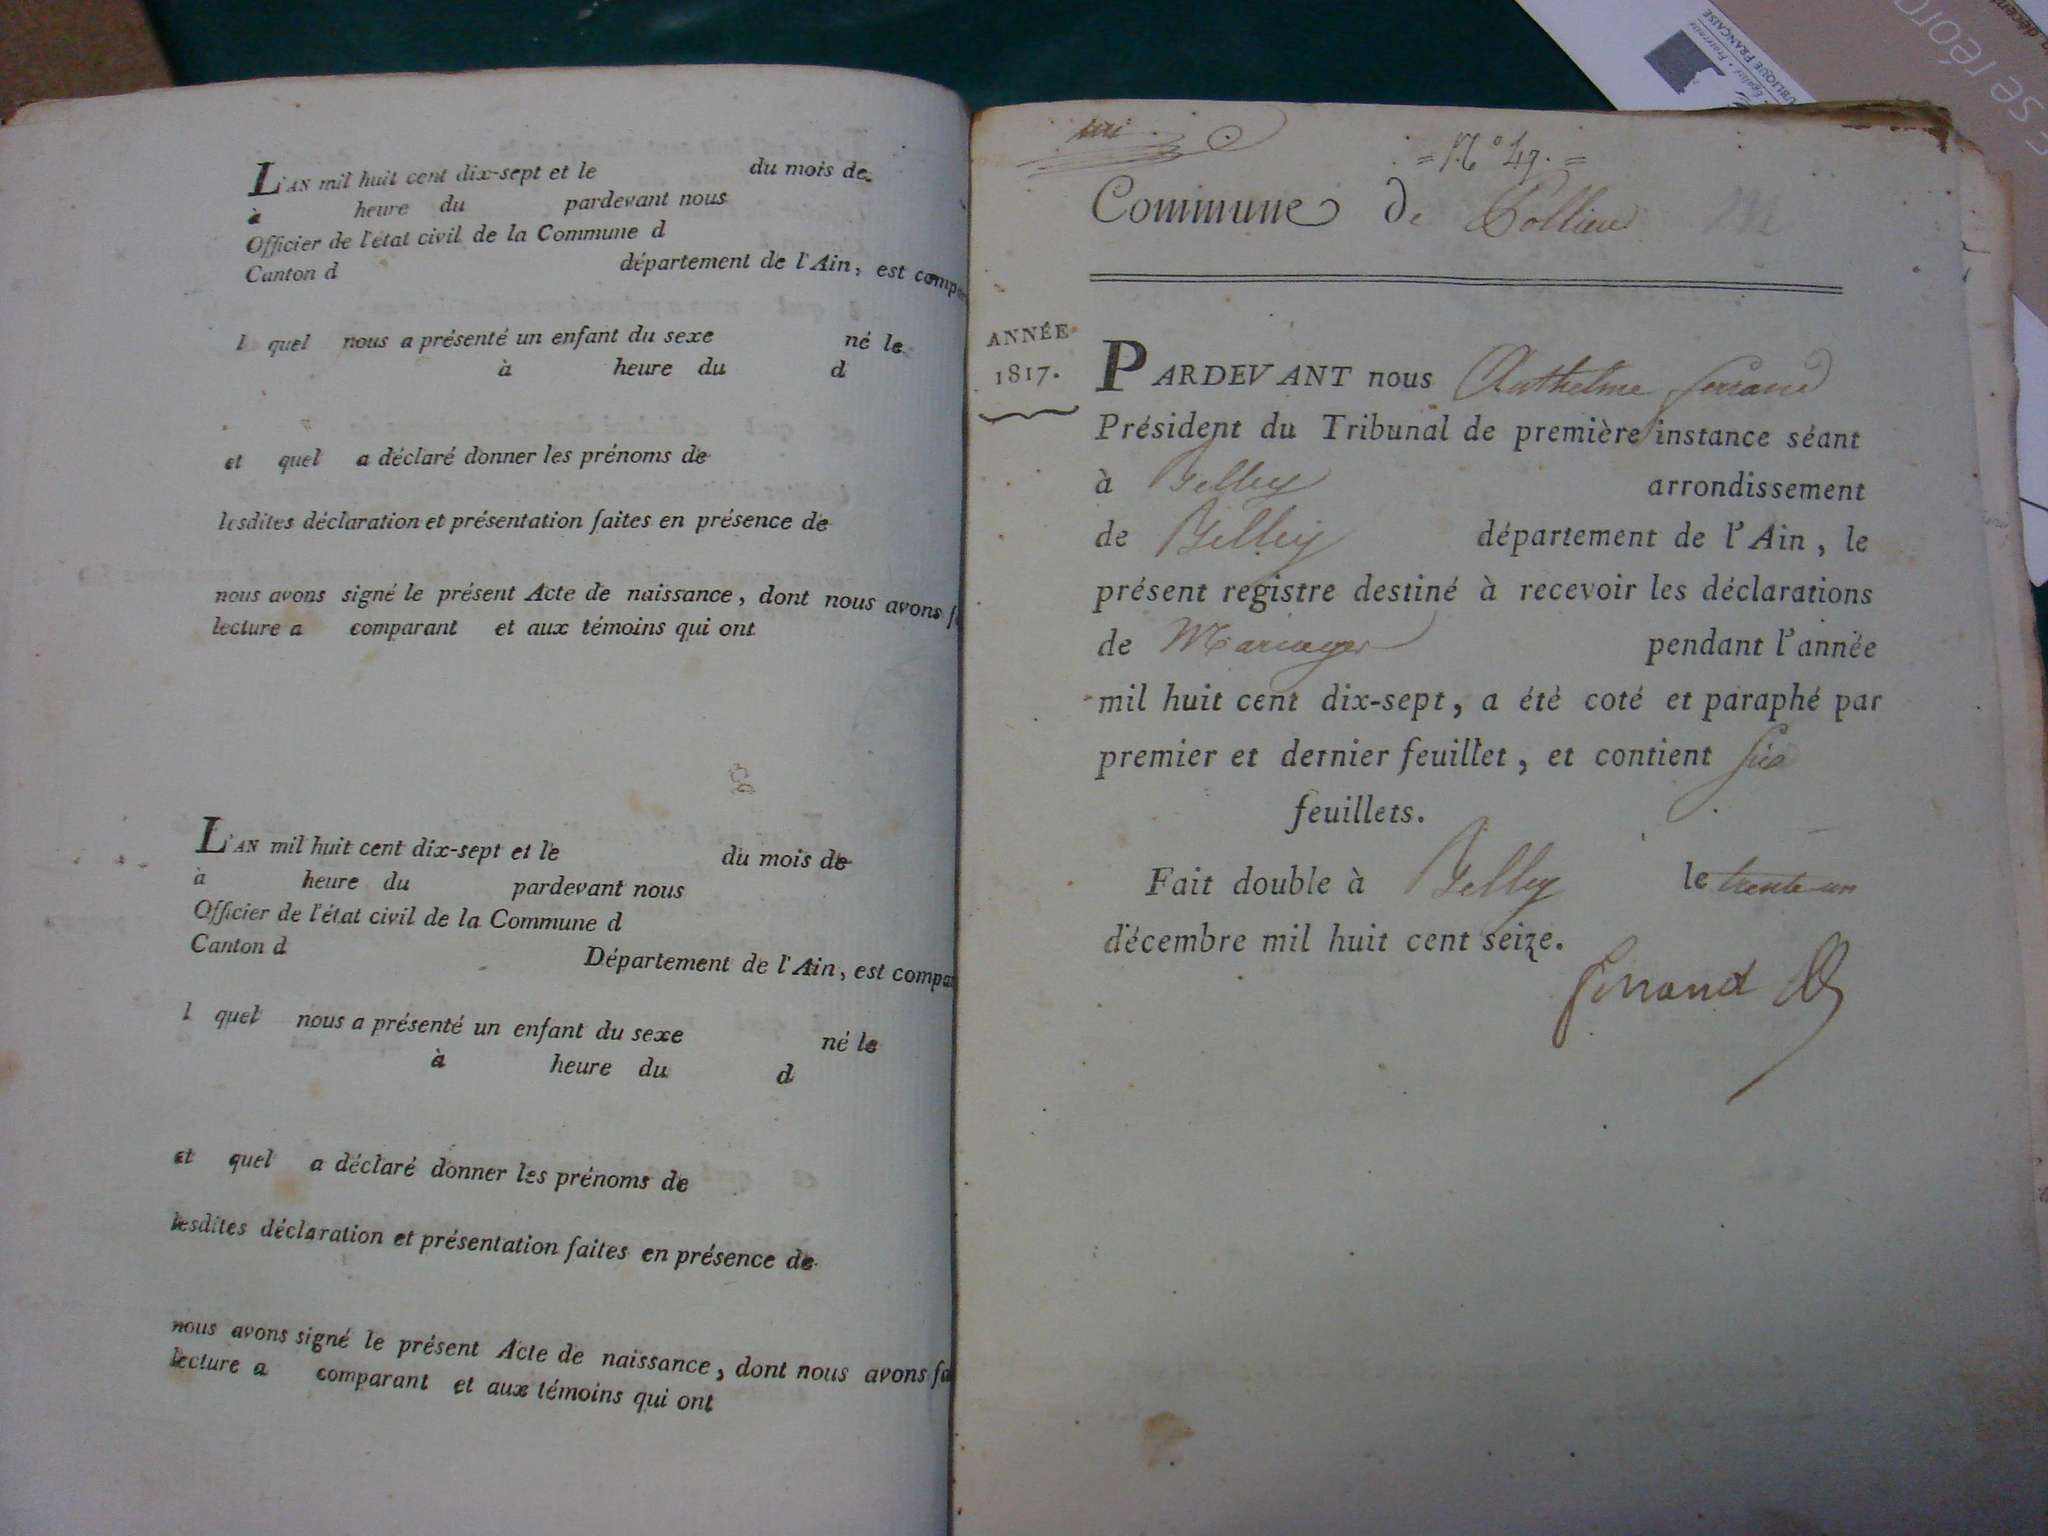 L'AN mil huit cent dix-sept et le du mois de
à heure du pardevant nous
Officier de l'état civil de la Commune d
Canton d département de l'Ain, est compa
l quel nous a présenté un enfant du sexe né le
à heure du d
et quel a déclaré donner les prénoms de
lesdites déclaration et présentation faites en présence de
nous avons signé le présent Acte de naissance, dont nous avons f
lecture a comparant et aux témoins qui ont
L'AN mil huit cent dix-sept et le du mois de
à heure du pardevant nous
Officier de l'état civil de la Commune d
Canton d Département de l'Ain, est compa
l quel nous a présenté un enfant du sexe né le
à heure du d
et quel a déclaré donner les prénoms de
lesdites déclaration et présentation faites en présence de
nous avons signé le présent Acte de naissance, dont nous avons fa
lecture a comparant et aux témoins qui ont
= N° 49. =
Commune de Pollieu
ANNÉE
1817.
PARDEVANT nous Anthelme ferrand
Président du Tribunal de première instance séant
à Belley arrondissement
de Belley département de l'Ain, le
présent registre destiné à recevoir les déclarations
de Mariages pendant l'année
mil huit cent dix-sept, a été coté et paraphé par
premier et dernier feuillet, et contient six
feuillets.
Fait double à Belley le trente un
décembre mil huit cent seize.
ferrand
PUBLIQUE FRANÇAISE
se réor